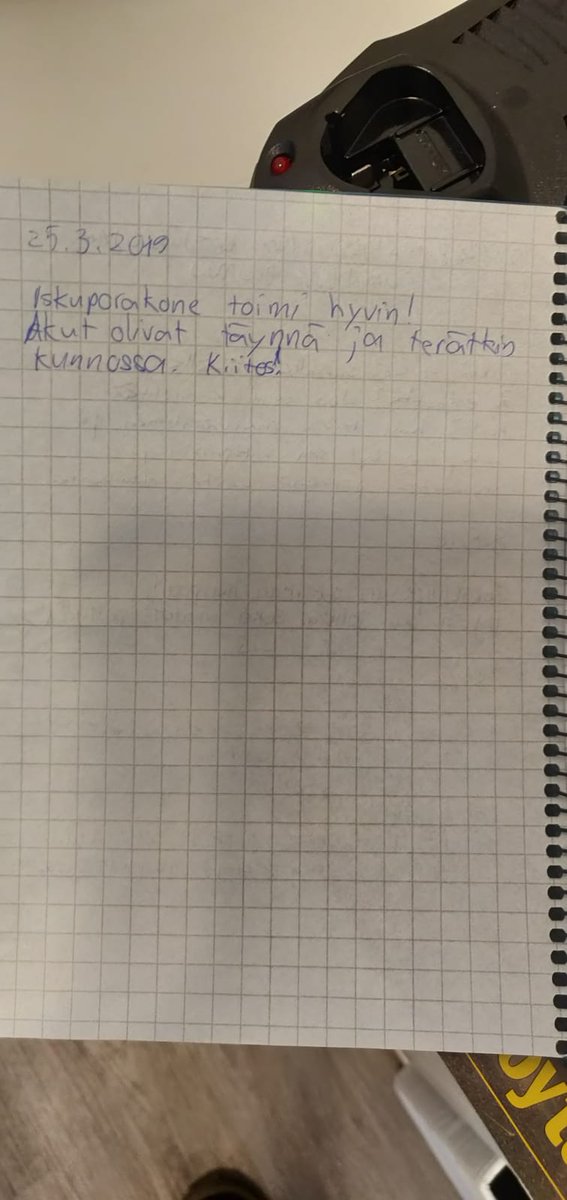 25.3.2019
Iskuporakone toimi hyvin!
Akut olivat täynnä ja terätkin
kunnossa. Kiitos!
öyt